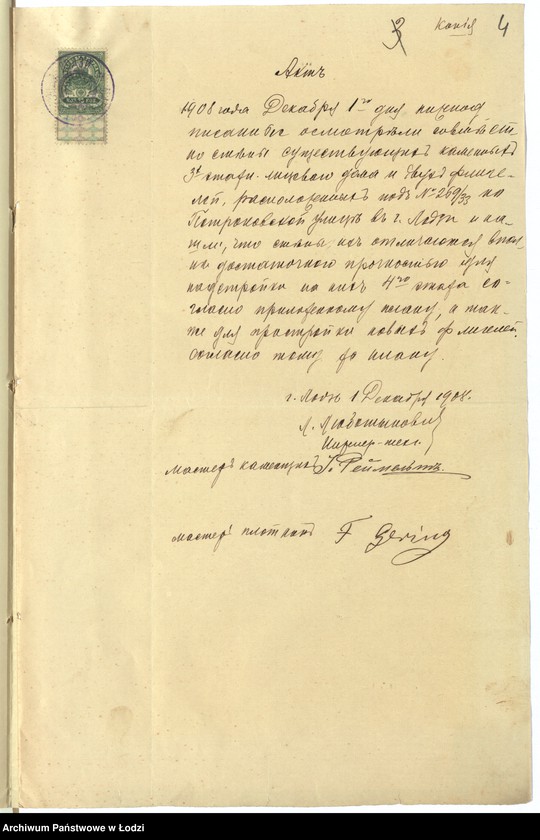 3 Копія 4
Актъ
1908 года Декабря 1го дня, ниже
писавшіеся осмотрѣли совмѣст-
но стѣны существующихъ каменныхъ
3х этажн. лицевого дома и двухъ флиге-
лей, расположенныхъ подъ № 269/33 на
Петроковской улицѣ въ г. Лодзи и на-
шли, что стѣны ихъ отличаются впол-
нѣ достаточною прочностью для
надстройки на нихъ 4го этажа со-
гласно приложенному плану, а так-
же для пристройки новыхъ флигелей,
согласно тому же плану.
г. Лодзь 1 Декабря 1908.
Инженер-техн.
Мастеръ каменщикъ
Мастеръ плотникъ F Gering
Archiwum Państwowe w Łodzi